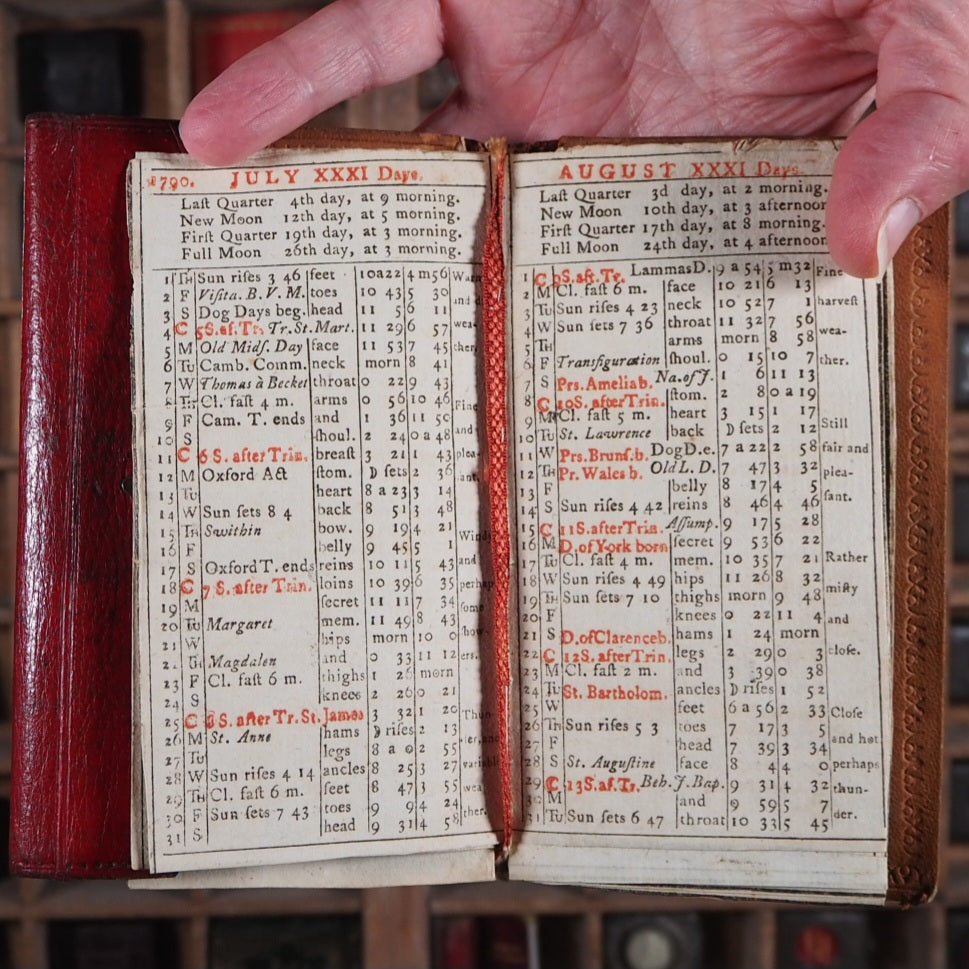 1790. JULY XXXI Days.
Laſt Quarter 4th day, at 9 morning.
New Moon 12th day, at 5 morning.
Firſt Quarter 19th day, at 3 morning.
Full Moon 26th day, at 3 morning.
1 TH Sun riſes 3 46 feet 10a22 4m56 Warm
2 F Viſita. B. V. M. toes 10 43 5 30 and
3 S Dog Days beg. head 11 5 6 11
4 C 5S.af.Tr. Tr.St.Mart. 11 29 6 57 wea-
5 M Old Midſ. Day face 11 53 7 45 ther,
6 Tu Camb. Comm. neck morn 8 41
7 W Thomas à Becket throat 0 22 9 43
8 TH Cl. faſt 4 m. arms 0 56 10 46 Fine
9 F Cam. T. ends and 1 36 11 50
10 S ſhoul. 2 24 0a48 and
11 C 6 S. after Trin. breaſt 3 21 1 43 plea-
12 M Oxford Act ſtom. D ſets 2 36 ant.
13 Tu heart 8a23 3 14
14 W Sun ſets 8 4 back 8 51 3 48
15 TH Swithin bow. 9 19 4 21 Wind
16 F belly 9 45 5 1
17 S Oxford T. ends reins 10 11 5 43 and
18 C 7 S. after Trin. loins 10 39 6 35 perhap
19 M ſecret 11 11 7 34 ſome
20 Tu Margaret mem. 11 49 8 43
21 W hips morn 10 0 ſhow-
22 TH Magdalen and 0 33 11 12 ers.
23 F Cl. faſt 6 m. thighs 1 26 morn
24 S knees 2 26 0 21
25 C 8 S. after Tr. St. James 3 32 1 20 Thun
26 M St. Anne hams D riſes 2 13
27 Tu legs 8a0 2 55
28 W Sun riſes 4 14 ancles 8 25 3 27 variabl
29 TH Cl. faſt 6 m. feet 8 47 3 55 wea
30 F Sun ſets 7 43 toes 9 9 4 24 ther.
31 S head 9 31 4 58
AUGUST XXXI Days.
Laſt Quarter 3d day, at 2 morning.
New Moon 10th day, at 3 afternoon
Firſt Quarter 17th day, at 8 morning.
Full Moon 24th day, at 4 afternoon
1 C 9S.aft.Tr. LammasD. 9a54 5m32 Fine
2 M Cl. faſt 6 m. face 10 21 6 13
3 Tu Sun riſes 4 23 neck 10 52 7 1 harveſt
4 W Sun ſets 7 36 throat 11 32 7 56
5 TH arms morn 8 58 wea-
6 F Transfiguration ſhoul. 0 15 10 7 ther.
7 S Prs.Ameliab. Na.of J. 1 6 11 13
8 C 10S.afterTrin. ſtom. 2 8 0a19
9 M Cl. faſt 5 m. heart 3 15 1 17 Still
10 Tu St. Lawrence back D ſets 2 12
11 W Prs.Brunſ.b. DogD.e. 7a22 2 58 fair and
12 TH Pr.Wales b. Old L. D. 7 47 3 32 plea-
13 F belly 8 17 4 5
14 S Sun riſes 4 42 reins 8 46 4 46 ſant.
15 C 11S.afterTrin. Aſſump. 9 17 5 28
16 M D.of York born ſecret 9 53 6 22
17 Tu Cl. faſt 4 m. mem. 10 35 7 21 Rather
18 W Sun riſes 4 49 hips 11 26 8 32
19 TH Sun ſets 7 10 thighs morn 9 48 miſty
20 F knees 0 22 11 4 and
21 S D.ofClarenceb. hams 1 24 morn
22 C 12S.afterTrin. legs 2 29 0 3 cloſe.
23 M Cl. faſt 2 m. and 3 39 0 38
24 Tu St. Bartholom. ancles D riſes 1 52
25 W feet 6a56 2 33 Cloſe
26 TH Sun riſes 5 3 toes 7 17 3 5
27 F head 7 39 3 34 and hot
28 S St. Auguſtine face 8 4 4 0 perhaps
29 C 13S.af.Tr. Beh.J.Bap. 9 31 4 32 thun-
30 M and 9 59 5 7
31 Tu Sun ſets 6 47 throat 10 33 5 45 der.